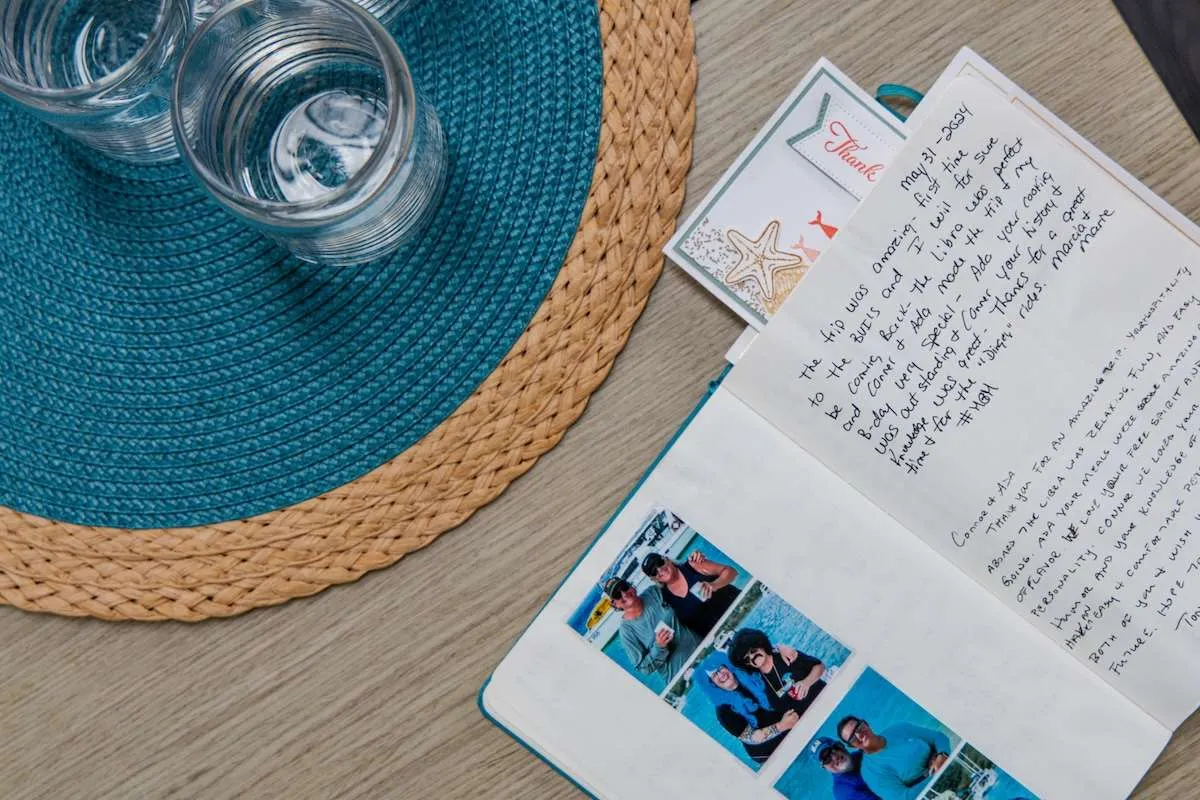 Thank
May 31-2024
The trip was amazing - first time
to the BVI'S and I will for sure
be coming Back - the Libra was perfect
and Conner & Ada made the trip & my
B-day very special - Ada your cooking
was outstanding & Conner your history &
knowledge was great - Thanks for a great
time & for the "Dingey" rides.
Marcia &
Marie
#MBM
Connor & Ada
THANK you FOR AN AMAZING TRIP. YOUR HOSPITALITY
ABOARD THE LIBRA WAS RELAXING, FUN, AND EASY
GOING. ADA YOUR MEALS WERE AMAZING
OF FLAVOR. WE LOVE YOUR FREE SPIRIT AND
PERSONALITY. CONNOR WE LOVED YOUR
HUMOR AND YOUR KNOWLEDGE OF
HAVE "EASY & COMFORTABLE PE
BOTH OF YOU & WISH
FUTURE. HOPE TO